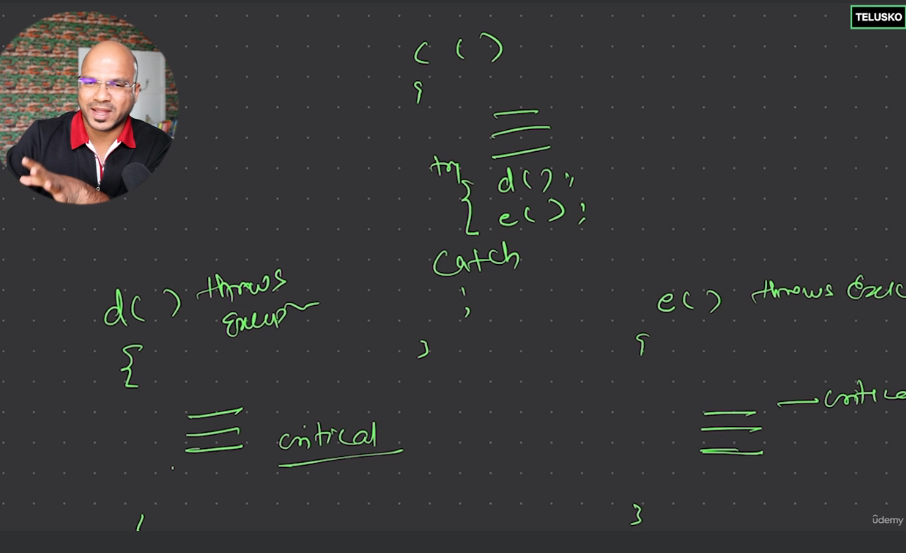 TELUSKO
c ()
{
try
{ d();
e();
catch
}
d() throws
{
critical
e() throws
{
critical
}
udemy